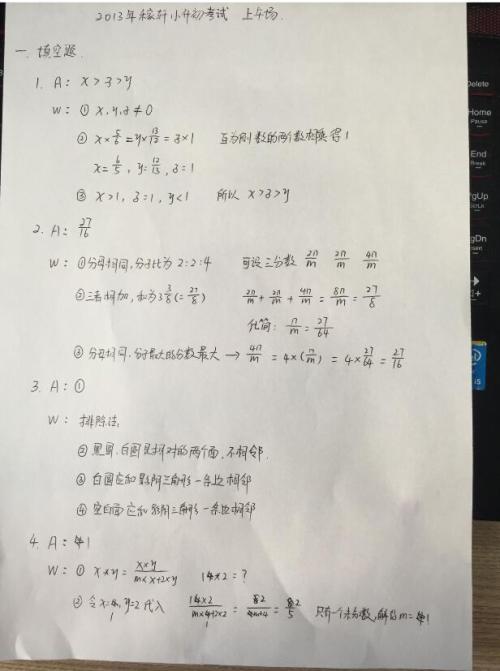 2013年稼轩小升初考试 上午场.
一. 填空题.
1. A: x>z>y
W: ① x,y,z≠0
② x×5/6=y×13/12=z×1 互为倒数的两个数相乘得1
x=6/5, y=12/13, z=1
③ x>1, z=1, y<1 所以 x>z>y
2. A: 27/16
W: ①分母相同,分子比为 2:2:4 可设三分数 2n/m 2n/m 4n/m
②三者相加,和为3 3/8(=27/8) 2n/m+2n/m+4n/m=8n/m=27/8
化简: n/m=27/64
③ 分母相同,分子最大的分数最大 → 4n/m=4×(n/m)=4×27/64=27/16
3. A: ①
W: 排除法.
② 黑圆,白圆是相对的两个面,不相邻.
③ 白圆应和阴影三角形一条边相邻
④ 空白面应和阴影三角形一条边相邻
4. A: 1
W: ① x*y=x×y/m×x+2×y 1*2=?
② 令x=1,y=2代入 1×2/m×1+2×2=2/m+4=2/5 只有一个未知数,解得m=1
Delete
Home
Pause
End
Break
PgUp
ScrLk
PgDn
Insert
i5